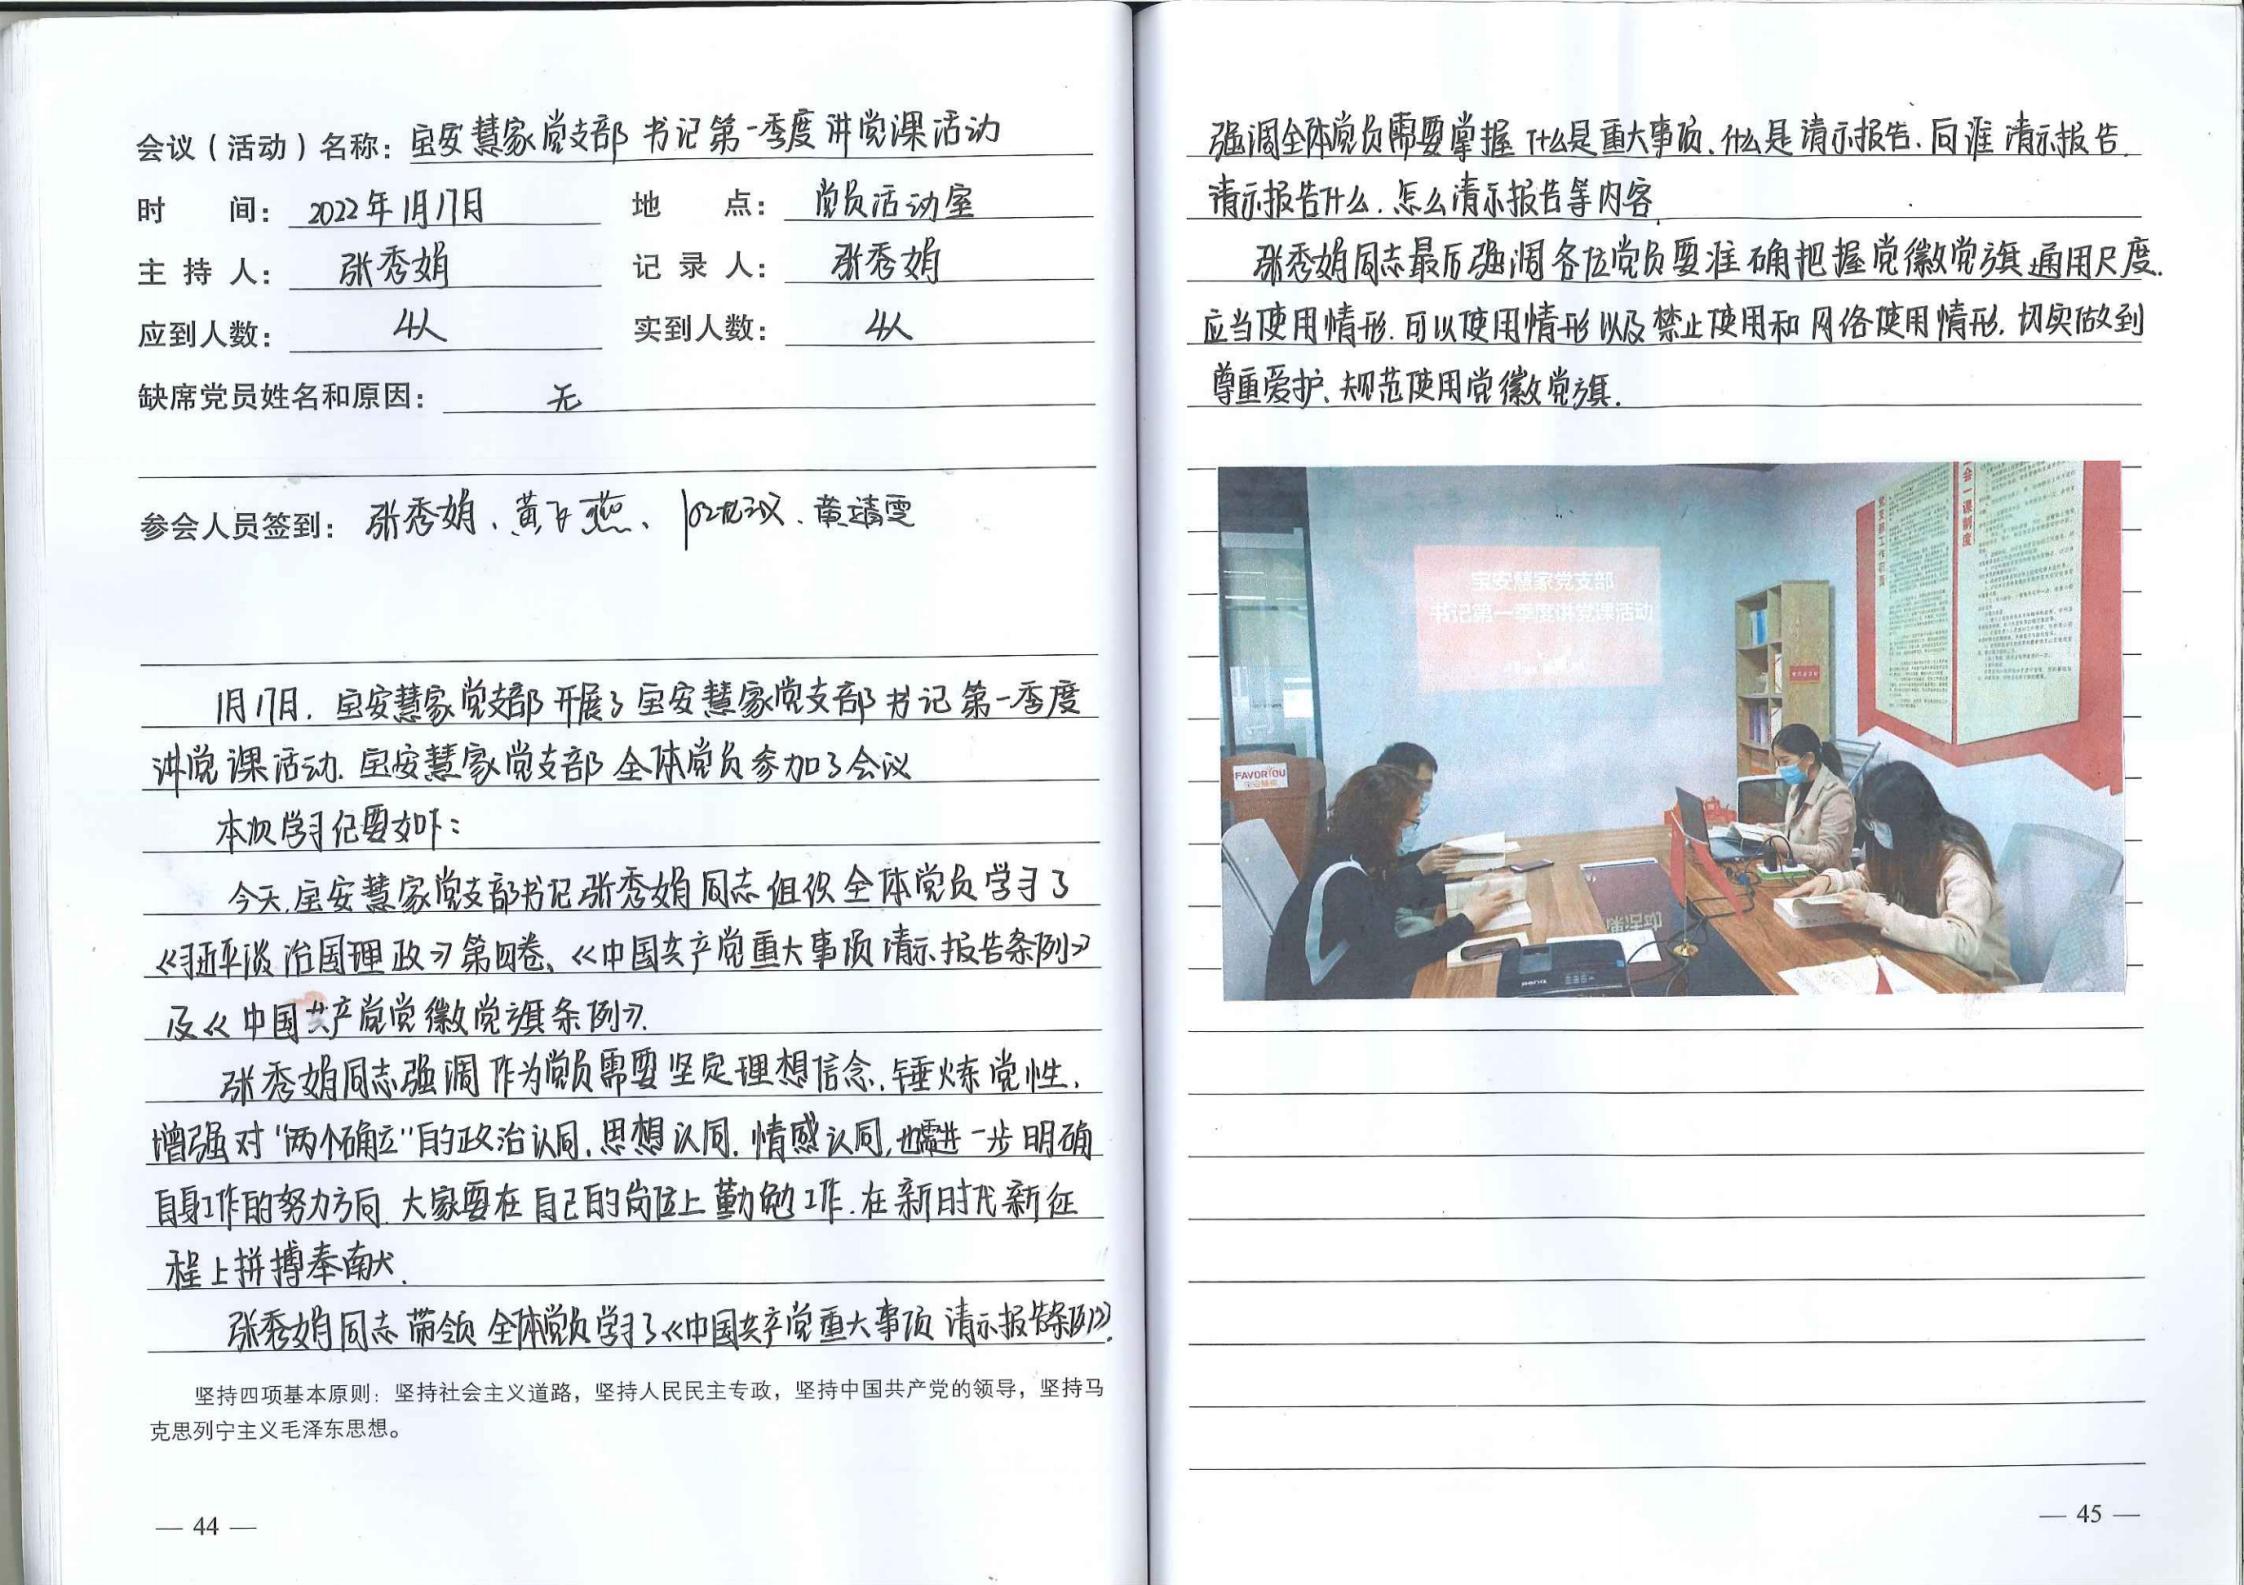 会议（活动）名称：宝安慧家党支部书记第一季度讲党课活动
时 间：2022年1月17日 地 点：党员活动室
主持人：张秀娟 记录人：张秀娟
应到人数：4人 实到人数：4人
缺席党员姓名和原因：无
参会人员签到：张秀娟、黄飞燕、黄靖雯
1月17日，宝安慧家党支部开展了宝安慧家党支部书记第一季度
讲党课活动.宝安慧家党支部全体党员参加了会议
本次学习纪要如下：
今天,宝安慧家党支部书记张秀娟同志组织全体党员学习了
《习近平谈治国理政》第四卷、《中国共产党重大事项请示报告条例》
及《中国共产党党徽党旗条例》.
张秀娟同志强调作为党员需要坚定理想信念,锤炼党性,
增强对“两个确立”的政治认同,思想认同,情感认同,也需进一步明确
自身工作的努力方向.大家要在自己的岗位上勤勉工作.在新时代新征
程上拼搏奉献.
张秀娟同志带领全体党员学习了《中国共产党重大事项请示报告条例》,
坚持四项基本原则：坚持社会主义道路，坚持人民民主专政，坚持中国共产党的领导，坚持马
克思列宁主义毛泽东思想。
— 44 —
强调全体党员需要掌握什么是重大事项、什么是请示报告、向谁请示报告、
请示报告什么、怎么请示报告等内容.
张秀娟同志最后强调各位党员要准确把握党徽党旗通用尺度.
应当使用情形.可以使用情形以及禁止使用和网络使用情形.切实做到
尊重爱护、规范使用党徽党旗.
宝安慧家党支部
书记第一季度讲党课活动
党支部工作职责
会一课制度
FAVORYOU
宝安慧家
— 45 —